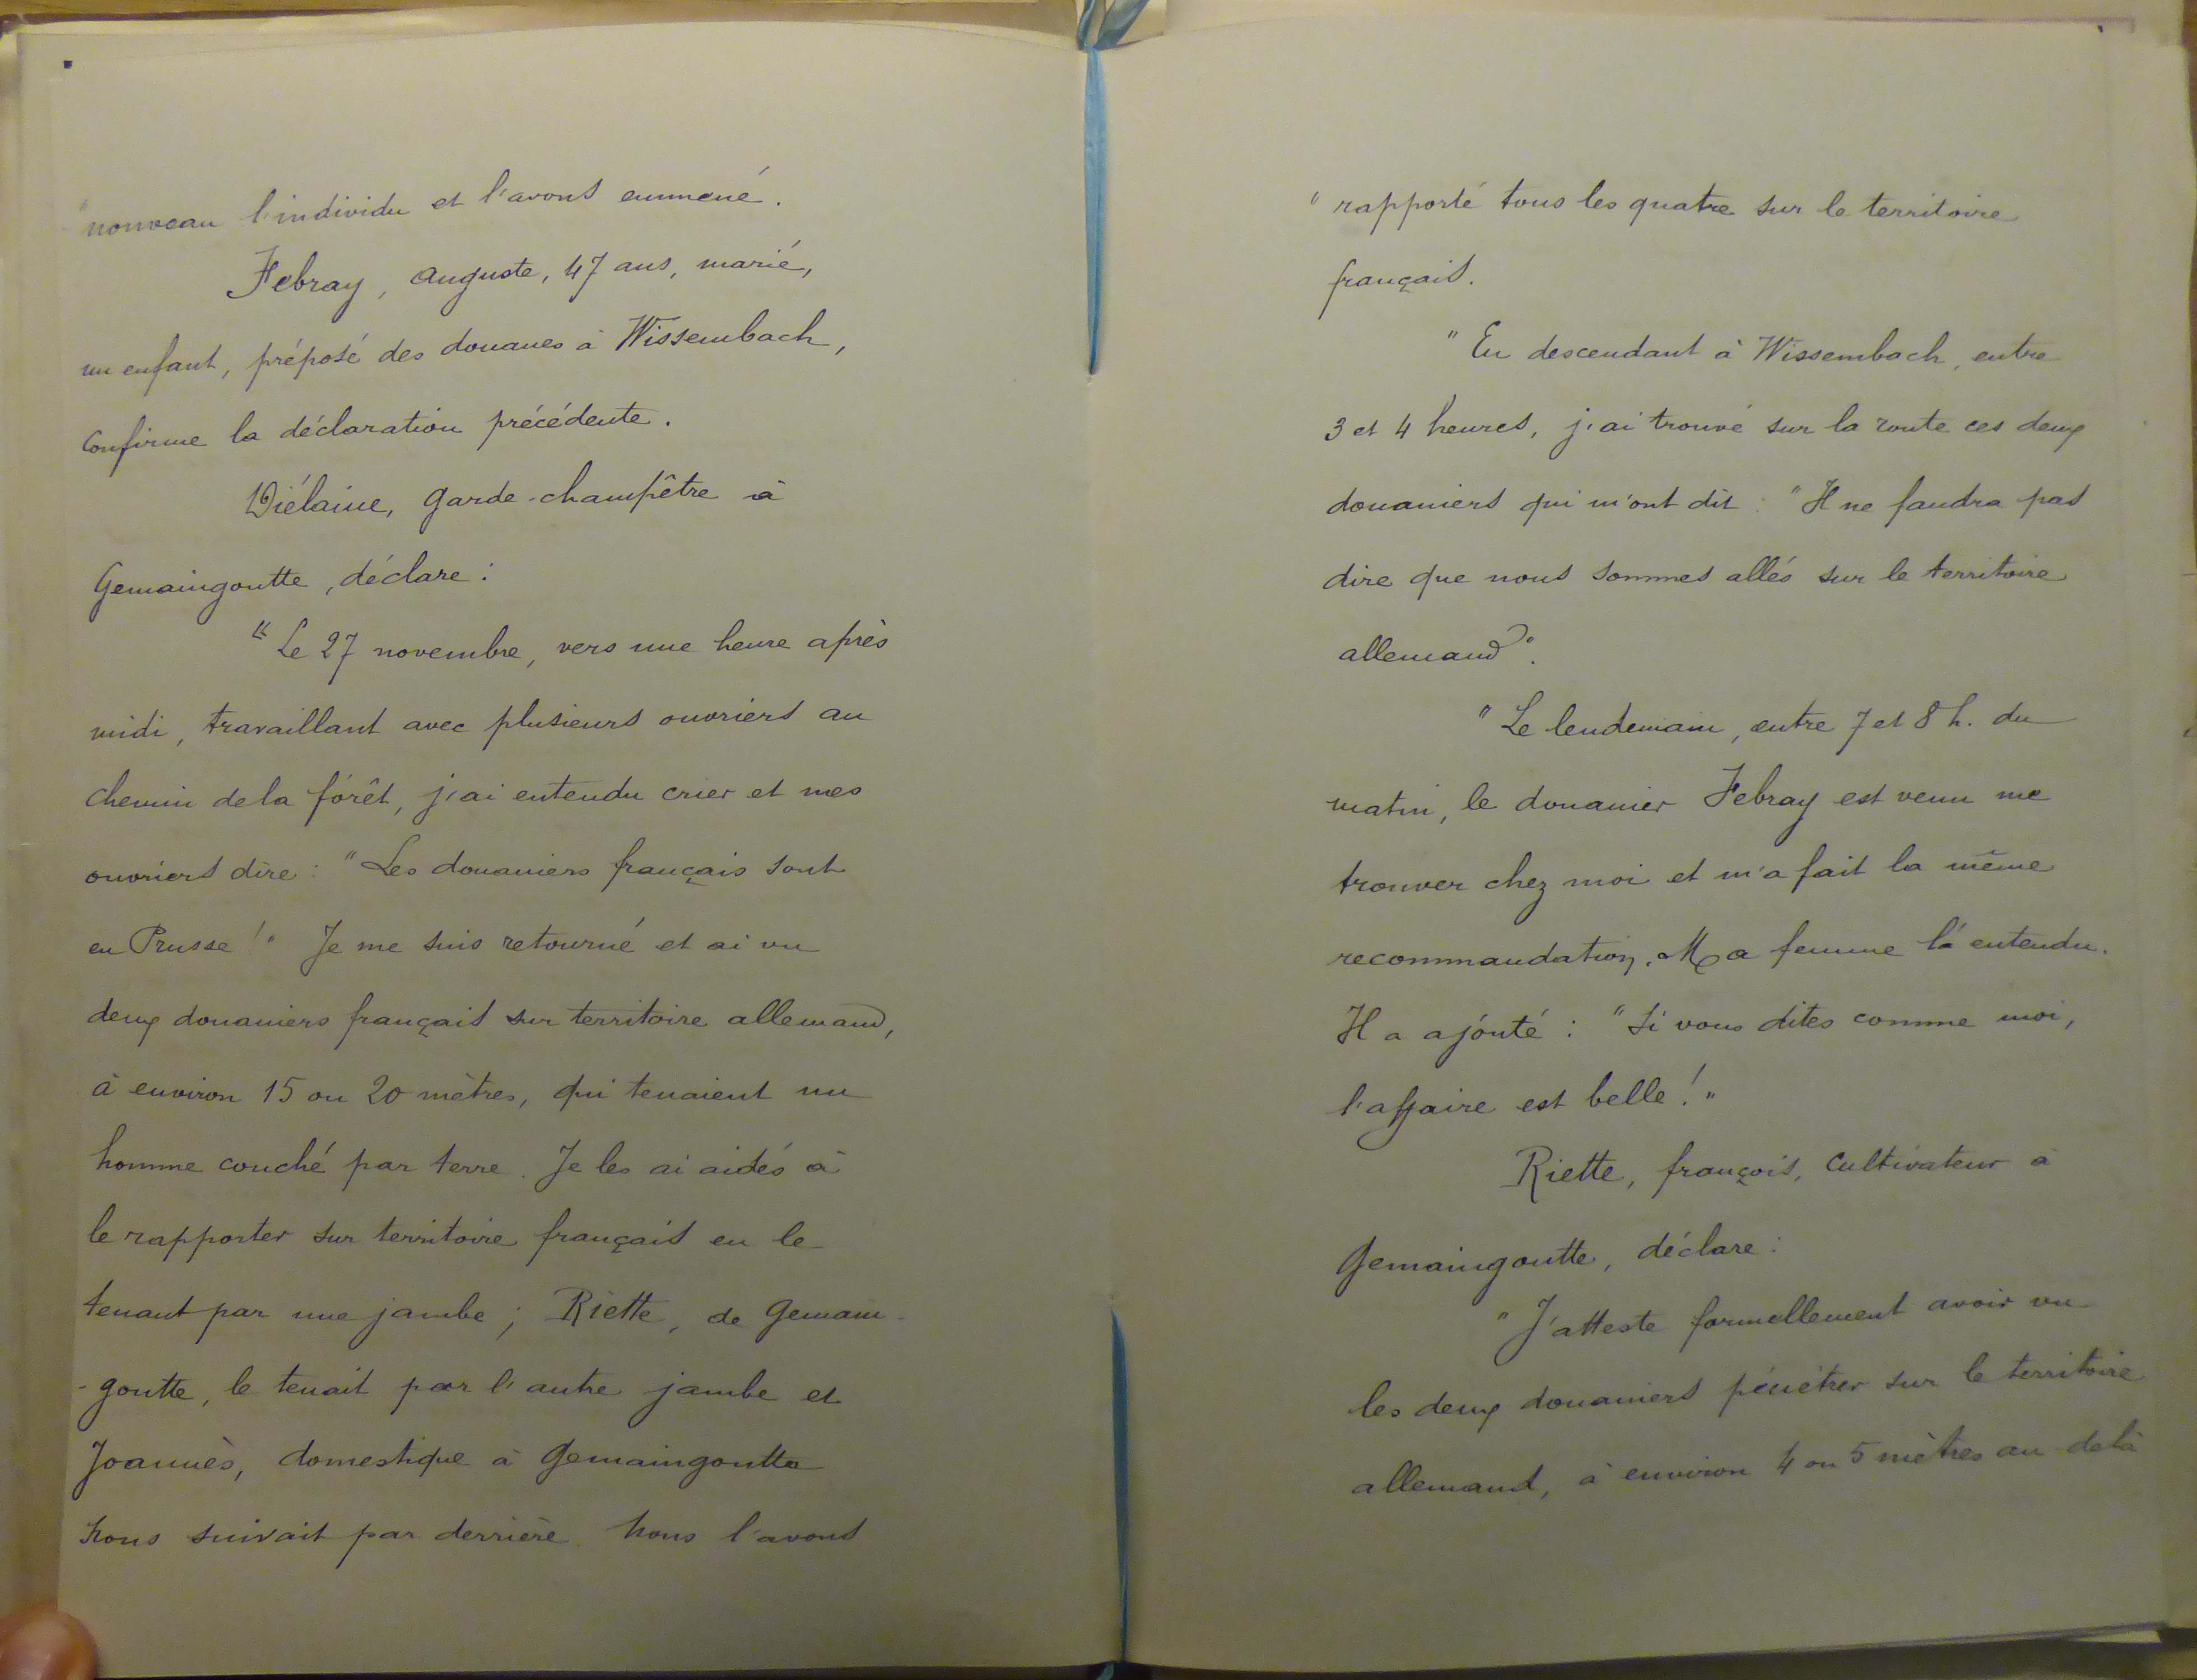 "nouveau l'individu et l'avons emmené.
Febray, Auguste, 47 ans, marié,
un enfant, préposé des douanes à Wissembach,
Confirme la déclaration précédente.
Diélaine, garde-champêtre à
Gemaingoutte, déclare :
"Le 27 novembre, vers une heure après
midi, travaillant avec plusieurs ouvriers au
chemin de la forêt, j'ai entendu crier et mes
ouvriers dire : "Les douaniers français sont
en Prusse !" Je me suis retourné et ai vu
deux douaniers français sur territoire allemand,
à environ 15 ou 20 mètres, qui tenaient un
homme couché par terre. Je les ai aidés à
le rapporter sur territoire français en le
tenant par une jambe ; Riette, de Gemain-
-goutte, le tenait par l'autre jambe et
Joannès, domestique à Gemaingoutte
nous suivait par derrière. Nous l'avons
"rapporté tous les quatre sur le territoire
français.
"En descendant à Wissembach, entre
3 et 4 heures, j'ai trouvé sur la route ces deux
douaniers qui m'ont dit : "Il ne faudra pas
dire que nous sommes allés sur le territoire
allemand".
"Le lendemain, entre 7 et 8 h. du
matin, le douanier Febray est venu me
trouver chez moi et m'a fait la même
recommandation. Ma femme l'a entendu.
Il a ajouté : "Si vous dites comme moi,
l'affaire est belle !"
Riette, françois, Cultivateur à
Gemaingoutte, déclare :
"J'atteste formellement avoir vu
les deux douaniers pénétrer sur le territoire
allemand, à environ 4 ou 5 mètres au delà